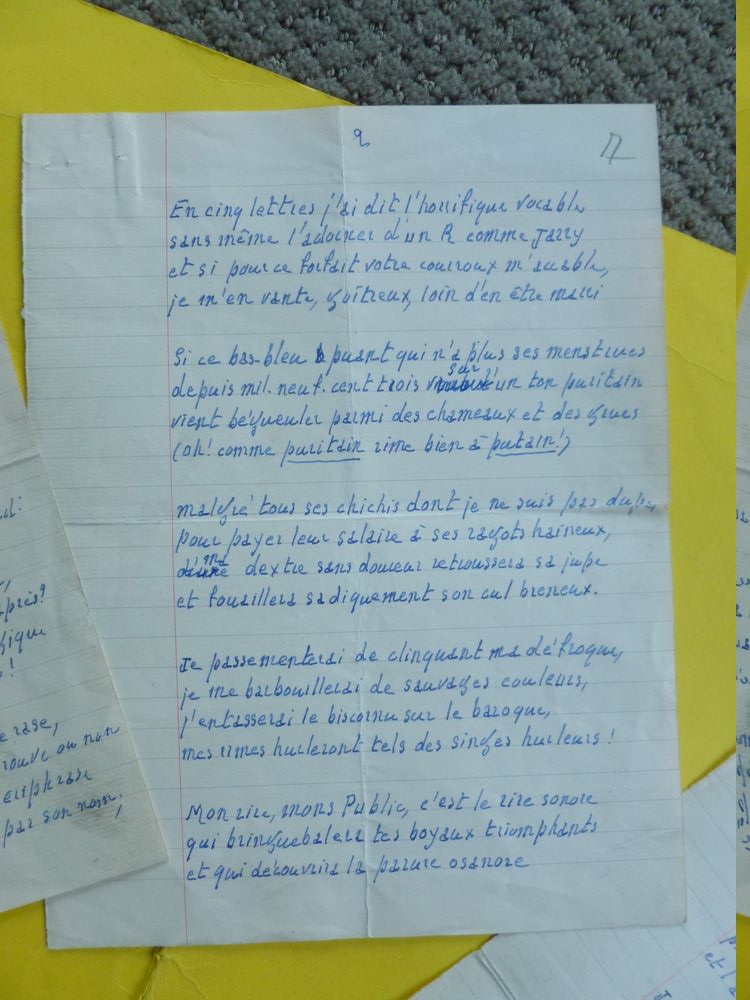 2
17
En cinq lettres j'ai dit l'horrifique vocable
sans même l'adorner d'un R comme Jarry
et si pour ce forfait votre courroux m'accable,
je m'en vante, goîtreux, loin d'en être marri
Si ce bas-bleu puant qui n'a plus ses menstrues
depuis mil. neuf. cent trois sur un ton puritain
vient bégueuler parmi des chameaux et des grues
(oh! comme puritain rime bien à putain!)
malgré tous ses chichis dont je ne suis pas dupe,
pour payer leur salaire à ses ragots haineux,
ma dextre sans douceur retroussera sa jupe
et fouaillera sadiquement son cul breneux.
Je passementerai de clinquant ma défroque,
je me barbouillerai de sauvages couleurs,
j'entasserai le biscornu sur le baroque,
mes rimes hurleront tels des singes hurleurs !
Mon rire, mons Public, c'est le rire sonore
qui bringuebalera tes boyaux triomphants
et qui découvrira la parure osanore
après?
rase,
rouve ou non
périphrase
par son nom;
et l